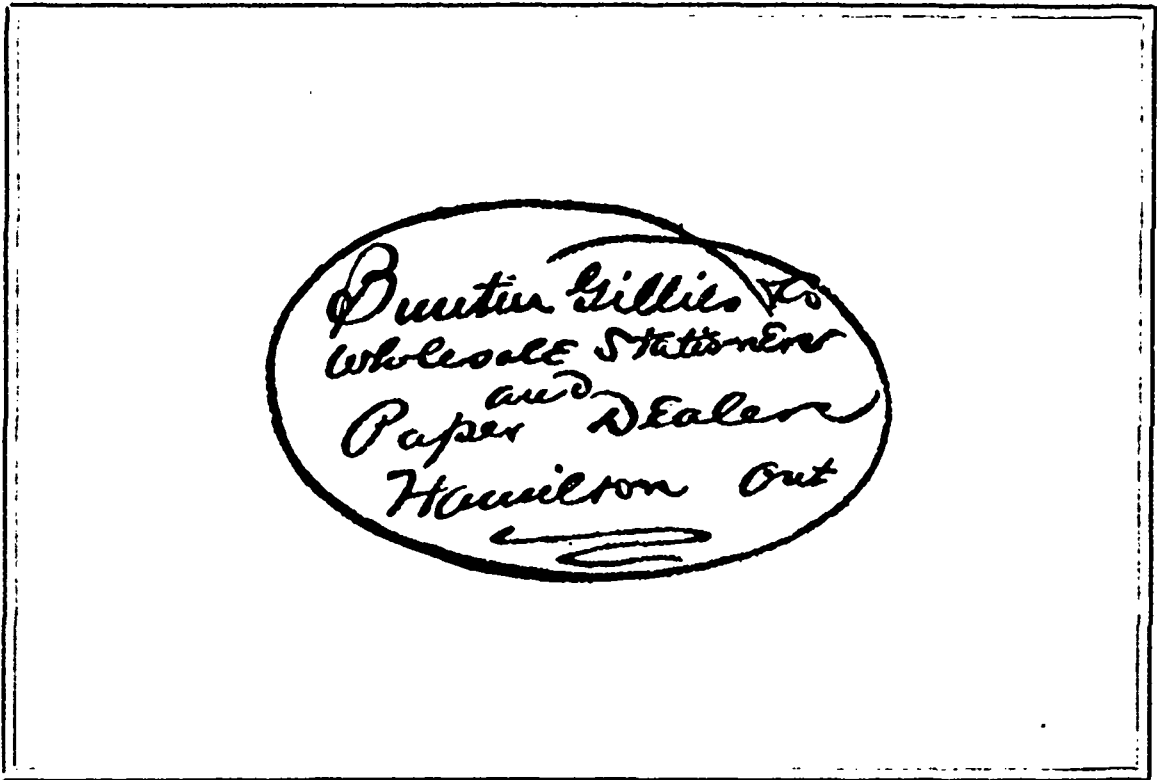 Buntin Gillies & Co
Wholesale Stationers
and
Paper Dealers
Hamilton Ont